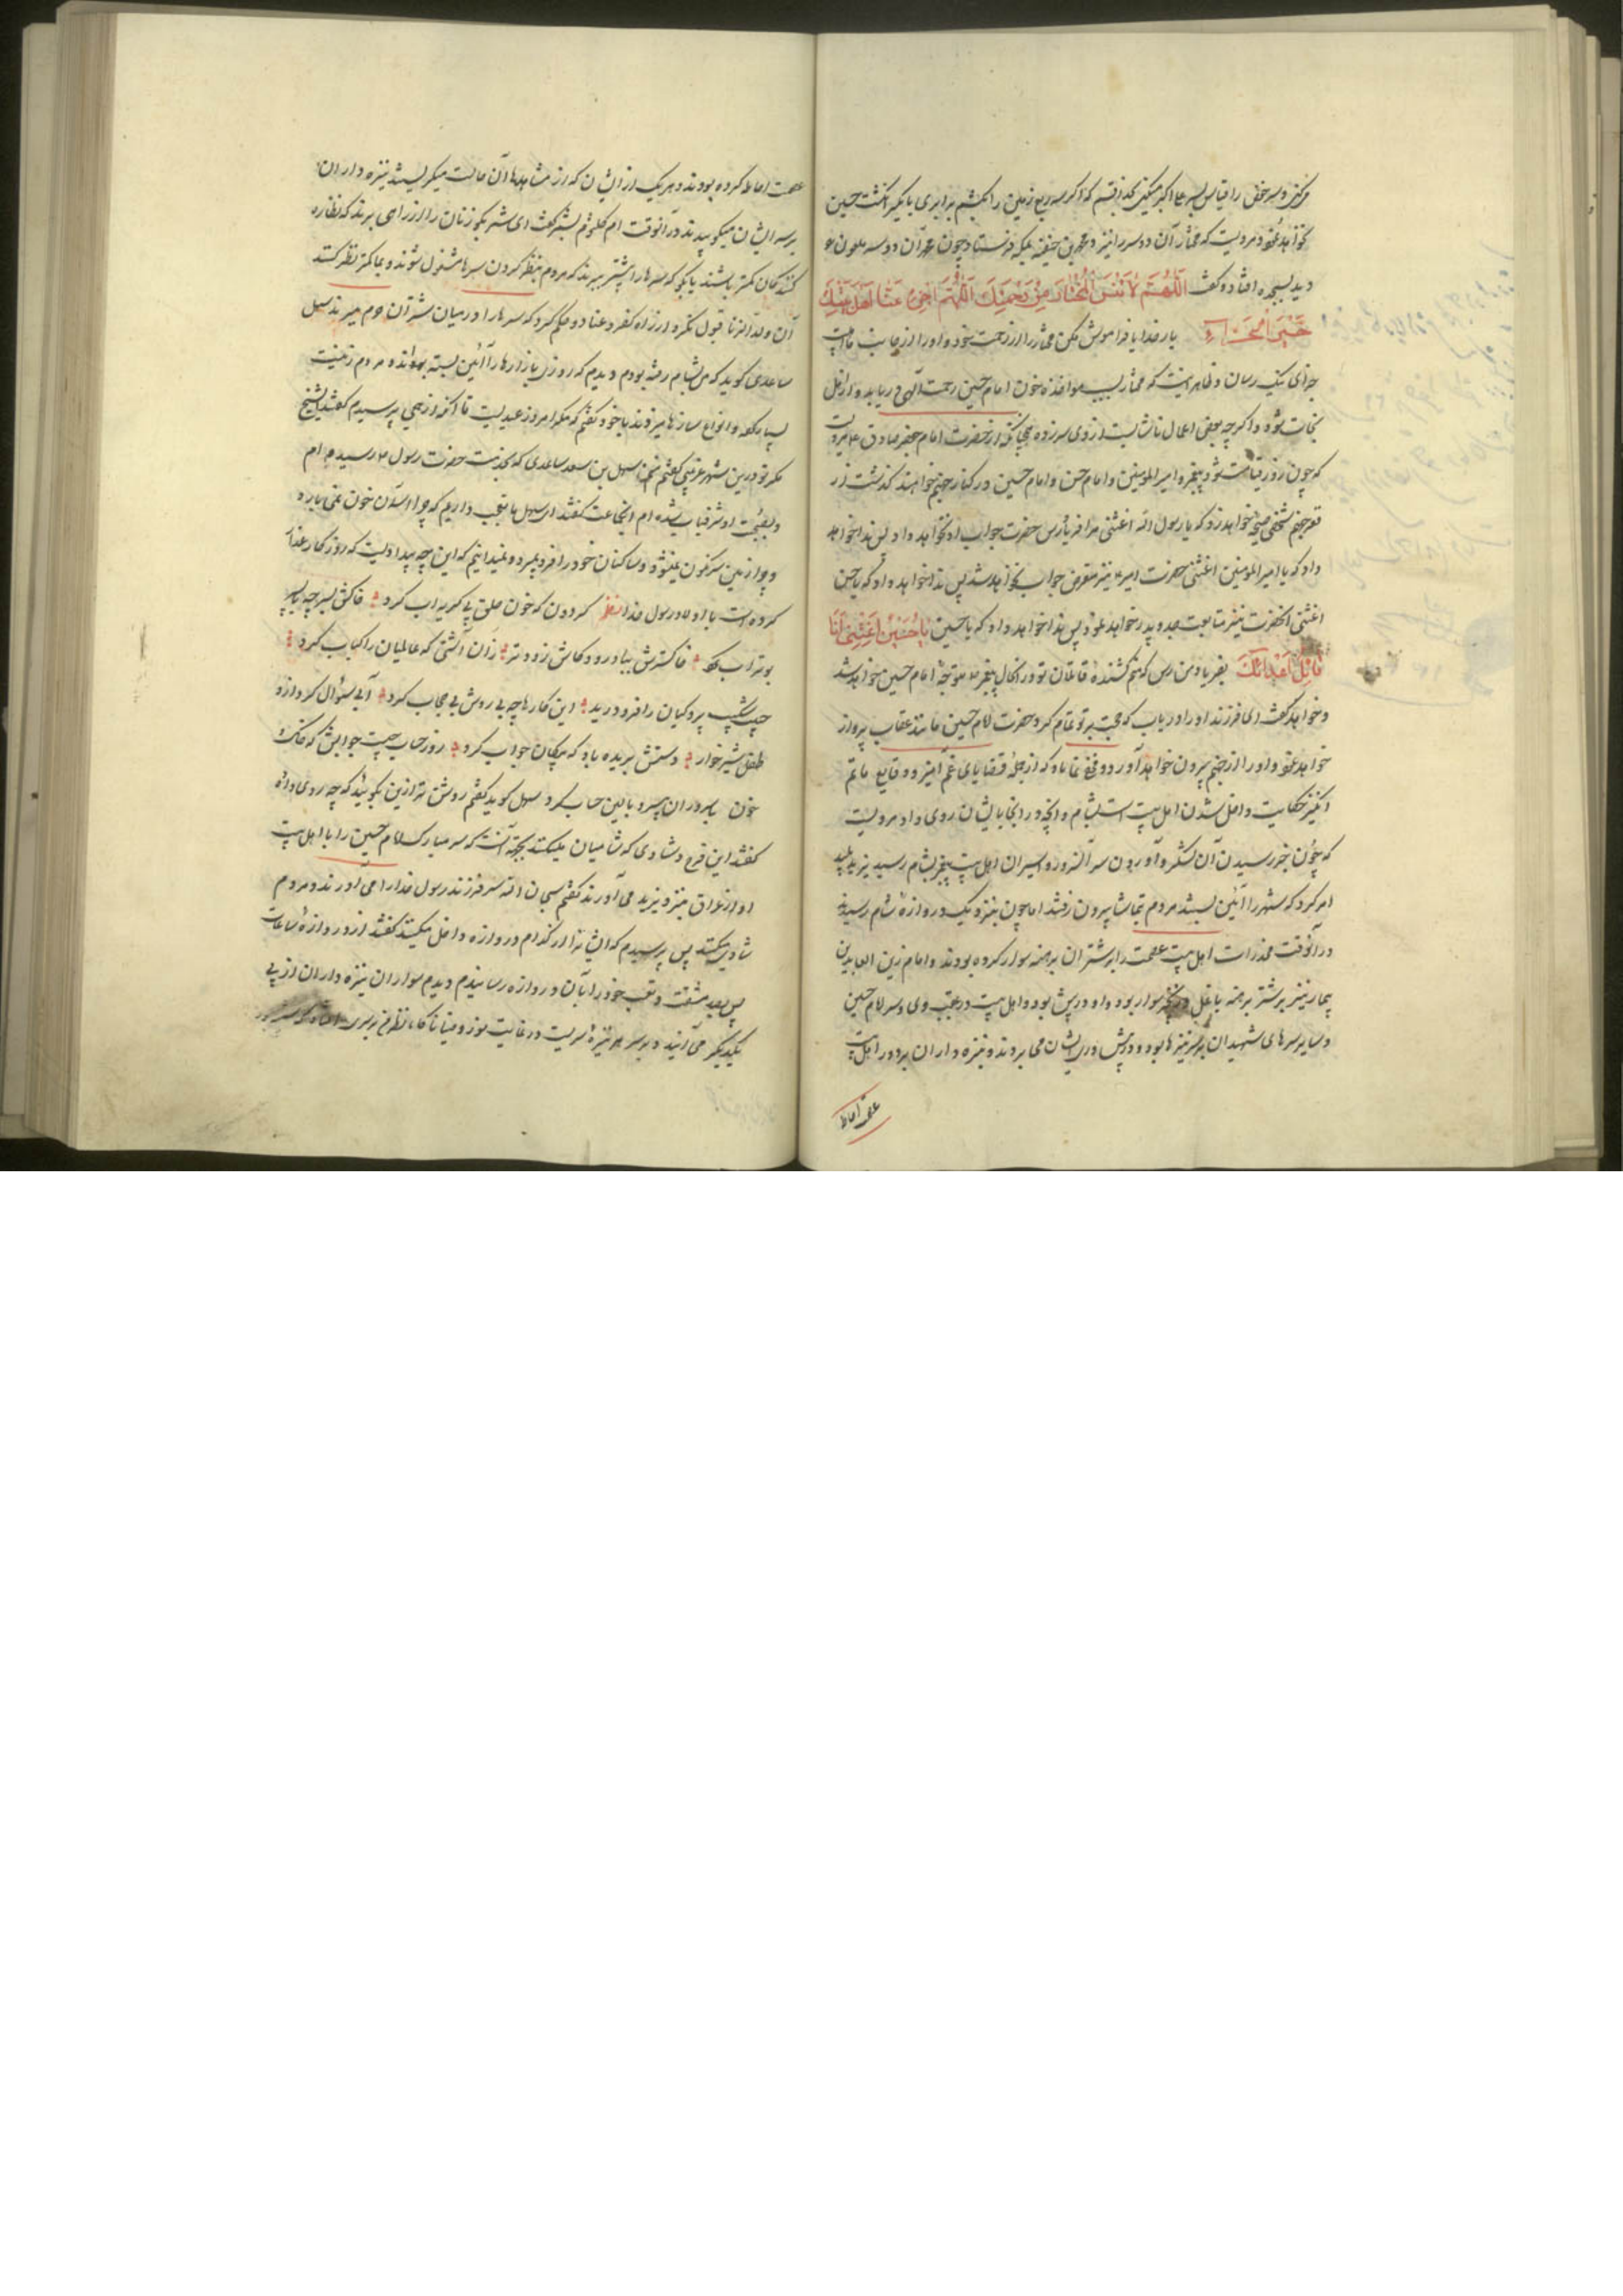 و سر حفص را قیاس بسر علی اکبر میکنی بخدا قسم که اگر سه ربع زمین را بکشم برابری با یک انگشت حسین
نخواهد نمود و مرویست که مختار آن دو سر را نیز بمحمد بن حنفیه بمکه فرستاد چون محمد آن دو سر ملعون
دید بسجده افتاد و گفت اللّهُمَّ لا تَنْسَ المُخْتارَ مِنْ رَحْمَتِكَ اللّهُمَّ اجْزِهِ عَنّا اَهْلَ بَيْتِكَ
خَيْرَ الْجَزاءِ بار خدایا فراموش مکن مختار را از رحمت خود و او را از جانب ما اهل بیت
جزای نیک رسان و ظاهر اینست که مختار بسبب مواخذه خون امام حسین رحمت الهی دریابد و از اهل
نجات شود و اگر چه بعضی اعمال ناشایست از وی سر زده چنانکه از حضرت امام جعفر صادق ع مرویست
که چون روز قیامت شود پیغمبر و امیر المومنین و امام حسن و امام حسین در کنار جهنم خواهند گذشت از
قعر جهنم شخصی صیحه خواهد زد که یا رسول الله اغثنی مرا فریاد رس حضرت جواب او نخواهد داد پس ندا خواهد
داد که یا امیر المومنین اغثنی حضرت امیر ع نیز متعرض جواب نخواهد شد پس ندا خواهد داد که یا حسن
اغثنی آنحضرت نیز متابعت جد و پدر خواهد نمود پس ندا خواهد داد که یا حسین يا حُسَيْنُ اَغِثْني اَنَا
قاتِلُ اَعْدائِكَ بفریاد من رس که منم کشنده قاتلان تو در آنحال پیغمبر ص متوجه امام حسین خواهد شد
و خواهد گفت ای فرزند او را دریاب که حجت بر تو تمام کرد حضرت امام حسین مانند عقاب پرواز
خواهد نمود و او را از جهنم بیرون خواهد آورد و مخفی نماناد که از جمله قضایای غم آمیز و وقایع ماتم
انگیز حکایت داخل شدن اهل بیت است بشام و آنچه در آنجا بایشان روی داد مرویست
که چون خبر رسیدن آن لشکر و آوردن سر آن سرور و اسیران اهل بیت پیغمبر بشام رسید یزید پلید
امر کرد که شهر را آئین بستند مردم بتماشا بیرون رفتند اما چون بنزدیک دروازه شام رسیدند
در آنوقت مخدرات اهل بیت عصمت را بر شتران برهنه سوار کرده بودند و امام زین العابدین
بیمار نیز بر شتر برهنه با غل و زنجیر سوار بود و او در پیش بود و اهل بیت در عقب وی و سر امام حسین
و سایر سرهای شهیدان بر سر نیزها بود و در پیش روی ایشان می بردند و نیزه داران بر دور اهل بیت
عصمت احاطه
عصمت احاطه کرده بودند و هر یک از ایشان که از مشاهده آن حالت میگریستند نیزه داران
بر سر ایشان میکوبیدند در آنوقت ام کلثوم بشمر گفت ای شمر بگو زنان را از راهی برند که نظاره
کنندگان کمتر باشند یا بگو که سرها را پیشتر برند که مردم بنظر کردن سرها مشغول شوند و بما کمتر نظر کنند
آن ولد الزنا قبول نکرد و از راه کفر و عناد حکم کرد که سرها را در میان شتران حرم میبرند سهل
ساعدی گوید که من بشام رفته بودم دیدم که روز بازارها را آئین بسته بودند و مردم زینت
بسیار کرده و انواع سازها میزدند با خود گفتم که مگر امروز عیدیست تا آنکه از جمعی پرسیدم گفتند ای شیخ
مگر تو درین شهر غریبی گفتم منم سهل بن سعد ساعدی که بخدمت حضرت رسول ص رسیده ام
و بصحبت او شرفیاب شده ام آنجماعت گفتند ای سهل ما تعجب داریم که چرا از آسمان خون نمی بارد
و چرا زمین سرنگون نمیشود و ساکنان خود را فرو نمیبرد و نمیدانیم که این چه بیدادیست که روزگار غدار
کرده است با اولاد رسول خدا نظم گردون که خون خلق بی گریه آب کرد خاکش بسر چه با پسر
بوتراب کرد خاکسترش بباد رود کاش زودتر زان آتشی که عالمیان را کباب کرد
پردگیان را فرو درید این کارها چه بی روش بی حجاب کرد آبی سئوال کرد از و
طفل شیرخوار دستش بریده باد که پیکان جواب کرد روز حساب چیست جوابش که خاک
خون سروران بسر و بالین حساب کرد سهل گوید گفتم روشن تر ازین بگوئید که چه روی داده
گفتند این فرح و شادی که شامیان میکنند بجهة آنست که سر مبارک امام حسین را با اهل بیت
او از عراق بنزد یزید می آورند گفتم سبحان الله سر فرزند رسول خدا را می آورند و مردم
شادی میکنند پس پرسیدم که ایشانرا از کدام دروازه داخل میکنند گفتند از دروازه ساعات
پس بصد مشقت و تعب خود را بآن دروازه رسانیدم دیدم سواران نیزه داران از پی
یکدیگر می آیند و بر سر هر نیزه سریست در غایت نور و ضیا ناگاه نظرم بر سری افتاد که